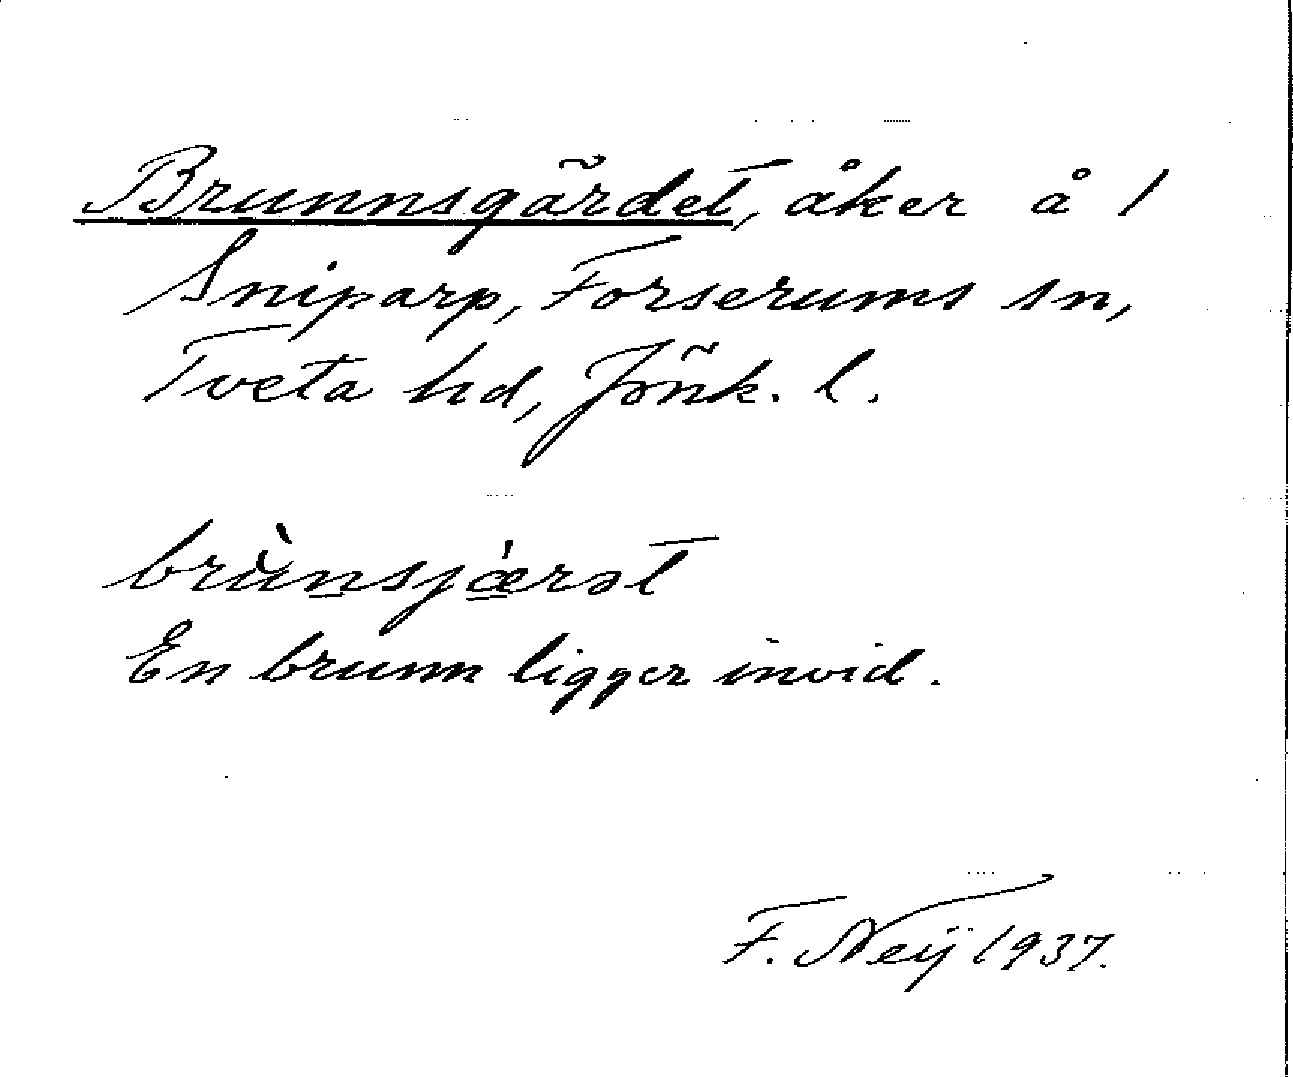 Brunnsgärdet, åker å 1
Sniparp, Forserums sn,
Tveta hd, Jönk. l.
brùnsjæ̀rət
En brunn ligger invid.
F. Neij 1937.